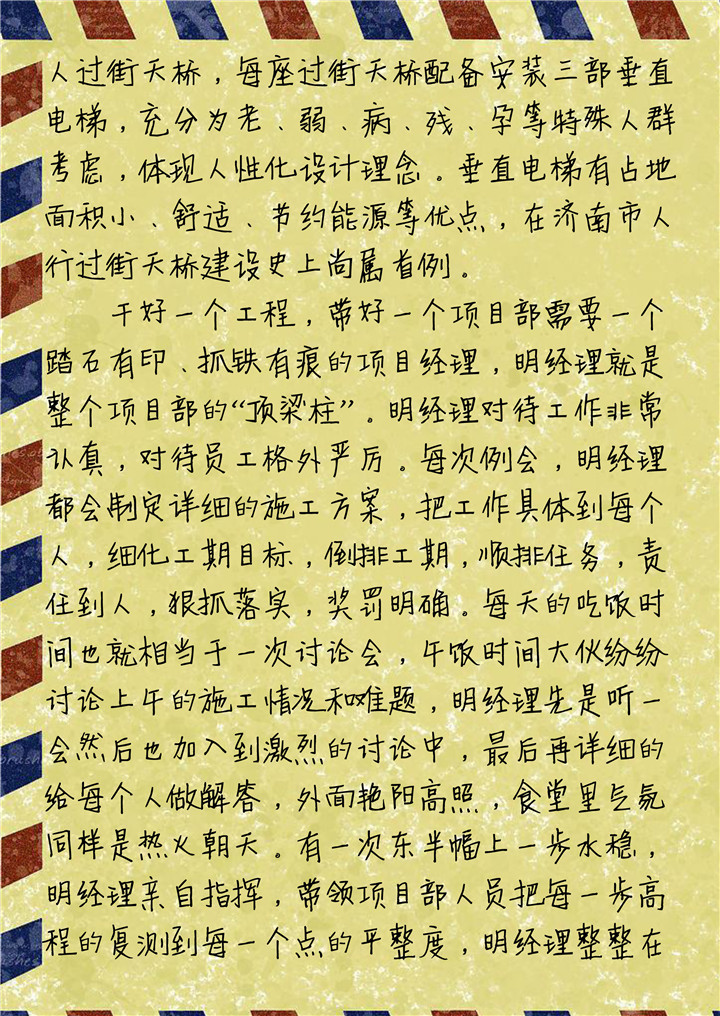 人过街天桥，每座过街天桥配备安装三部垂直
电梯，充分为老、弱、病、残、孕等特殊人群
考虑，体现人性化设计理念。垂直电梯有占地
面积小、舒适、节约能源等优点，在济南市人
行过街天桥建设史上尚属首例。
干好一个工程，带好一个项目部需要一个
踏石有印、抓铁有痕的项目经理，明经理就是
整个项目部的“顶梁柱”。明经理对待工作非常
认真，对待员工格外严厉。每次例会，明经理
都会制定详细的施工方案，把工作具体到每个
人，细化工期目标，倒排工期，顺排任务，责
任到人，狠抓落实，奖罚明确。每天的吃饭时
间也就相当于一次讨论会，午饭时间大伙纷纷
讨论上午的施工情况和难题，明经理先是听一
会然后也加入到激烈的讨论中，最后再详细的
给每个人做解答，外面艳阳高照，食堂里气氛
同样是热火朝天。有一次东半幅上一步水稳，
明经理亲自指挥，带领项目部人员把每一步高
程的复测到每一个点的平整度，明经理整整在